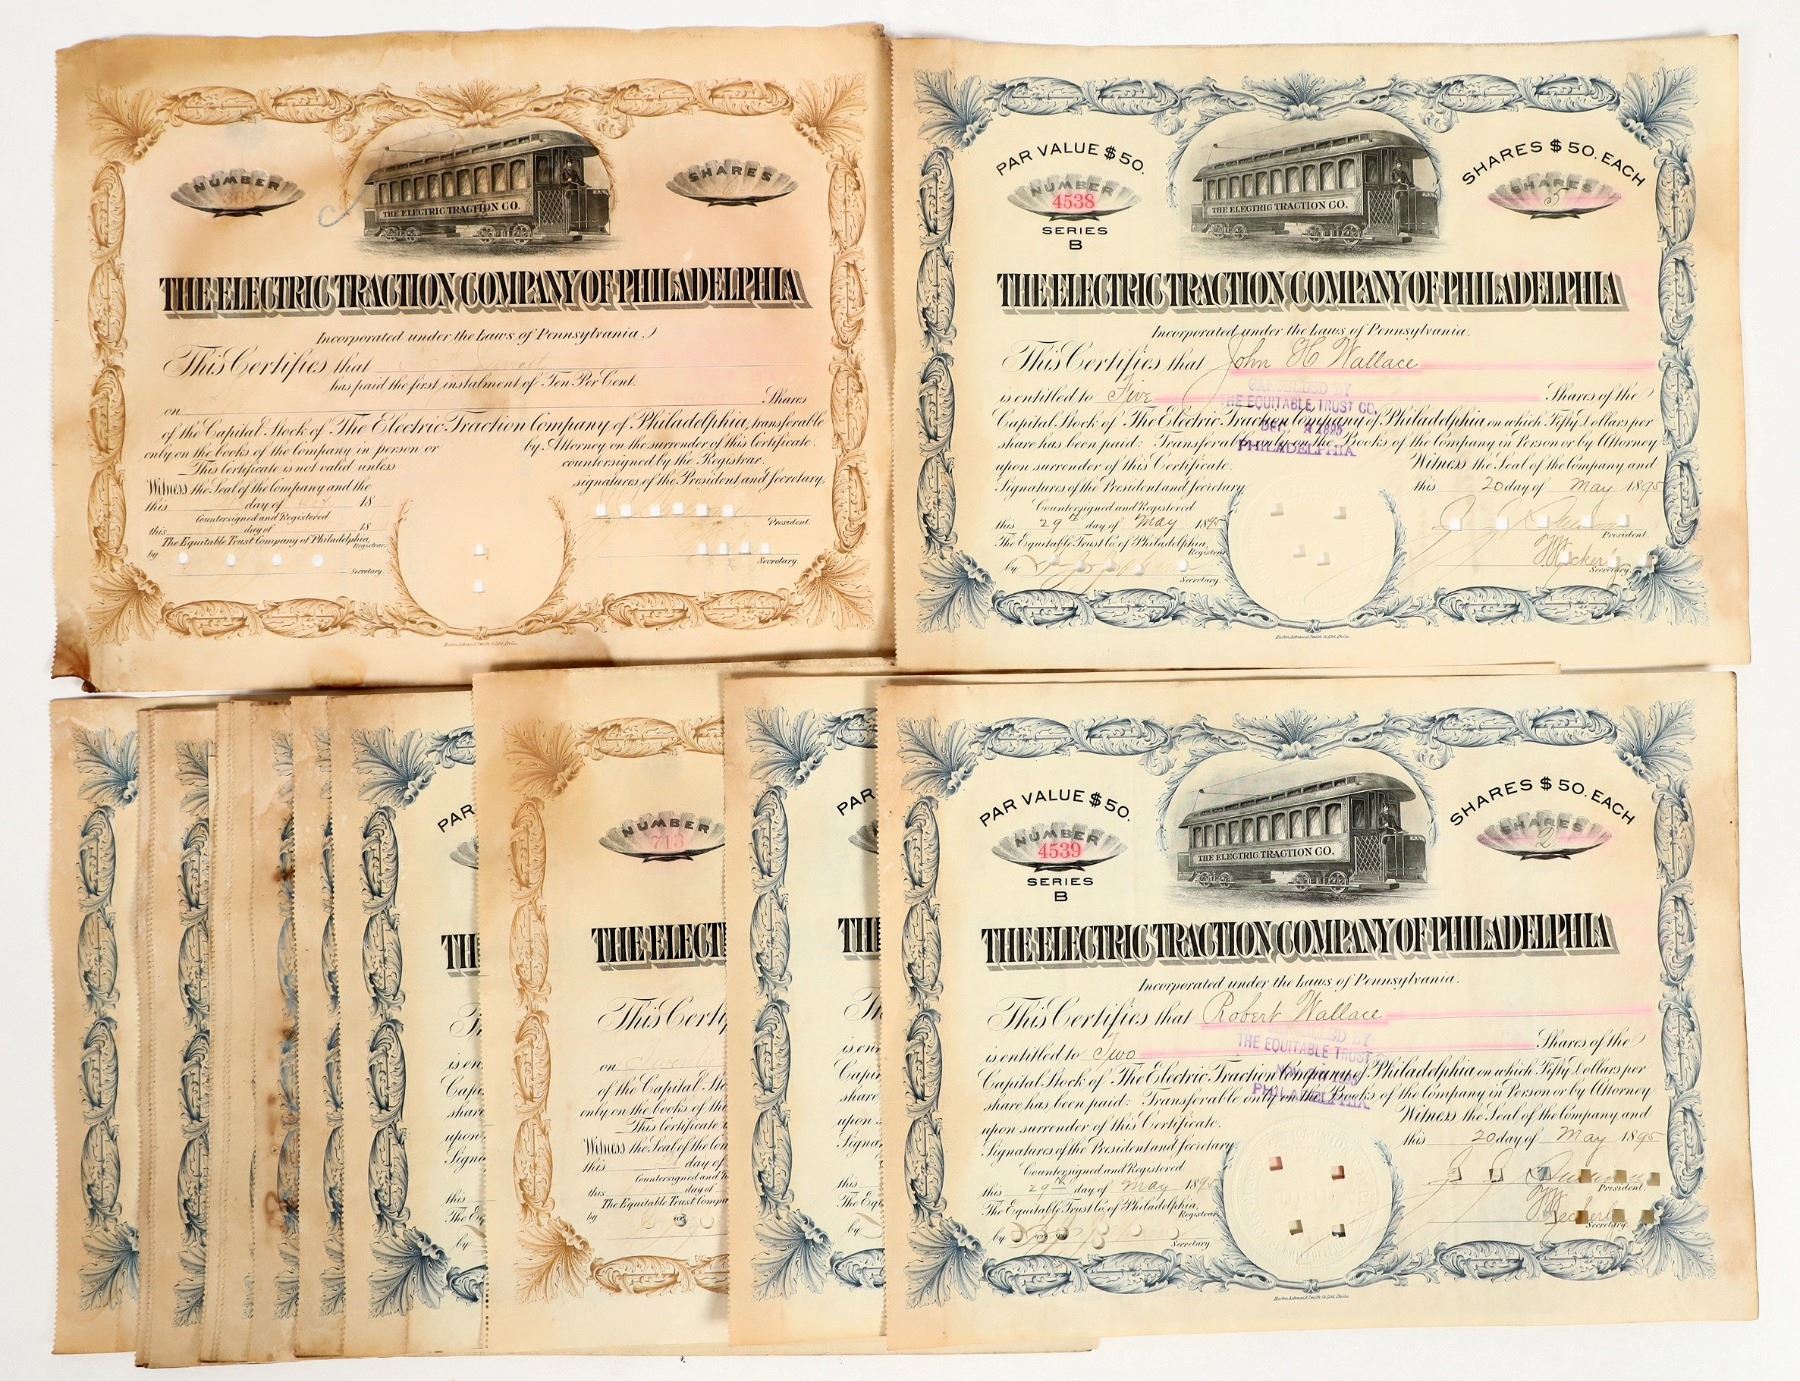 NUMBER
SHARES
THE ELECTRIC TRACTION CO.
THE ELECTRIC TRACTION COMPANY OF PHILADELPHIA
Incorporated under the Laws of Pennsylvania.
This Certifies that
has paid the first instalment of Ten Per Cent.
on Shares
of the Capital Stock of The Electric Traction Company of Philadelphia, transferable
only on the books of the Company in person or by Attorney on the surrender of this Certificate.
This Certificate is not valid unless countersigned by the Registrar.
Witness the Seal of the Company and the signatures of the President and Secretary,
this day of 18
Countersigned and Registered
this day of 18
President.
The Equitable Trust Company of Philadelphia,
Registrar.
by
Secretary.
Secretary.
PAR VALUE $50.
SHARES $50. EACH
NUMBER
4538
SERIES
B
SHARES
5
THE ELECTRIC TRACTION CO.
THE ELECTRIC TRACTION COMPANY OF PHILADELPHIA
Incorporated under the Laws of Pennsylvania.
This Certifies that John H Wallace
is entitled to Five Shares of the
CANCELLED BY
THE EQUITABLE TRUST CO.
1895
PHILADELPHIA
Capital Stock of The Electric Traction Company of Philadelphia on which Fifty Dollars per
share has been paid: Transferable only on the Books of the Company in Person or by Attorney
upon surrender of this Certificate. Witness the Seal of the Company and
Signatures of the President and Secretary this 20 day of May 1895
Countersigned and Registered
this 29th day of May 1895
President.
The Equitable Trust Co. of Philadelphia,
Registrar
by
Secretary.
Secretary.
NUMBER
713
THE ELECT
This Certif
on
of the Capital Sto
only on the books of the
This Certificate
Witness the Seal of the Com
this day of
Countersigned and R
this day of
The Equitable Trust Compa
by
PAR
TH
PAR
TH
PAR VALUE $50.
SHARES $50. EACH
NUMBER
4539
SERIES
B
SHARES
2
THE ELECTRIC TRACTION CO.
THE ELECTRIC TRACTION COMPANY OF PHILADELPHIA
Incorporated under the Laws of Pennsylvania.
This Certifies that Robert Wallace
is entitled to Two Shares of the
THE EQUITABLE TRUST
PHILADELPHIA
Capital Stock of The Electric Traction Company of Philadelphia on which Fifty Dollars per
share has been paid: Transferable only on the Books of the Company in Person or by Attorney
upon surrender of this Certificate. Witness the Seal of the Company and
Signatures of the President and Secretary this 20 day of May 1895
Countersigned and Registered
this 29th day of May 1895
President.
The Equitable Trust Co. of Philadelphia,
Registrar
by
Secretary.
Secretary.